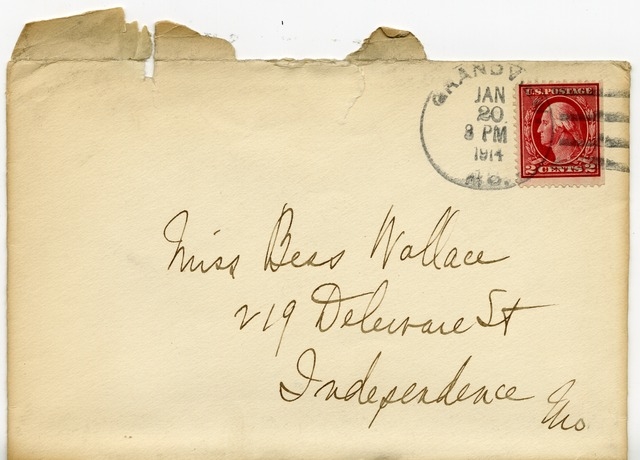 GRANDV
JAN
20
8 PM
1914
MO.
U.S. POSTAGE
2 CENTS 2
Miss Bess Wallace
219 Delaware St
Independence
Mo